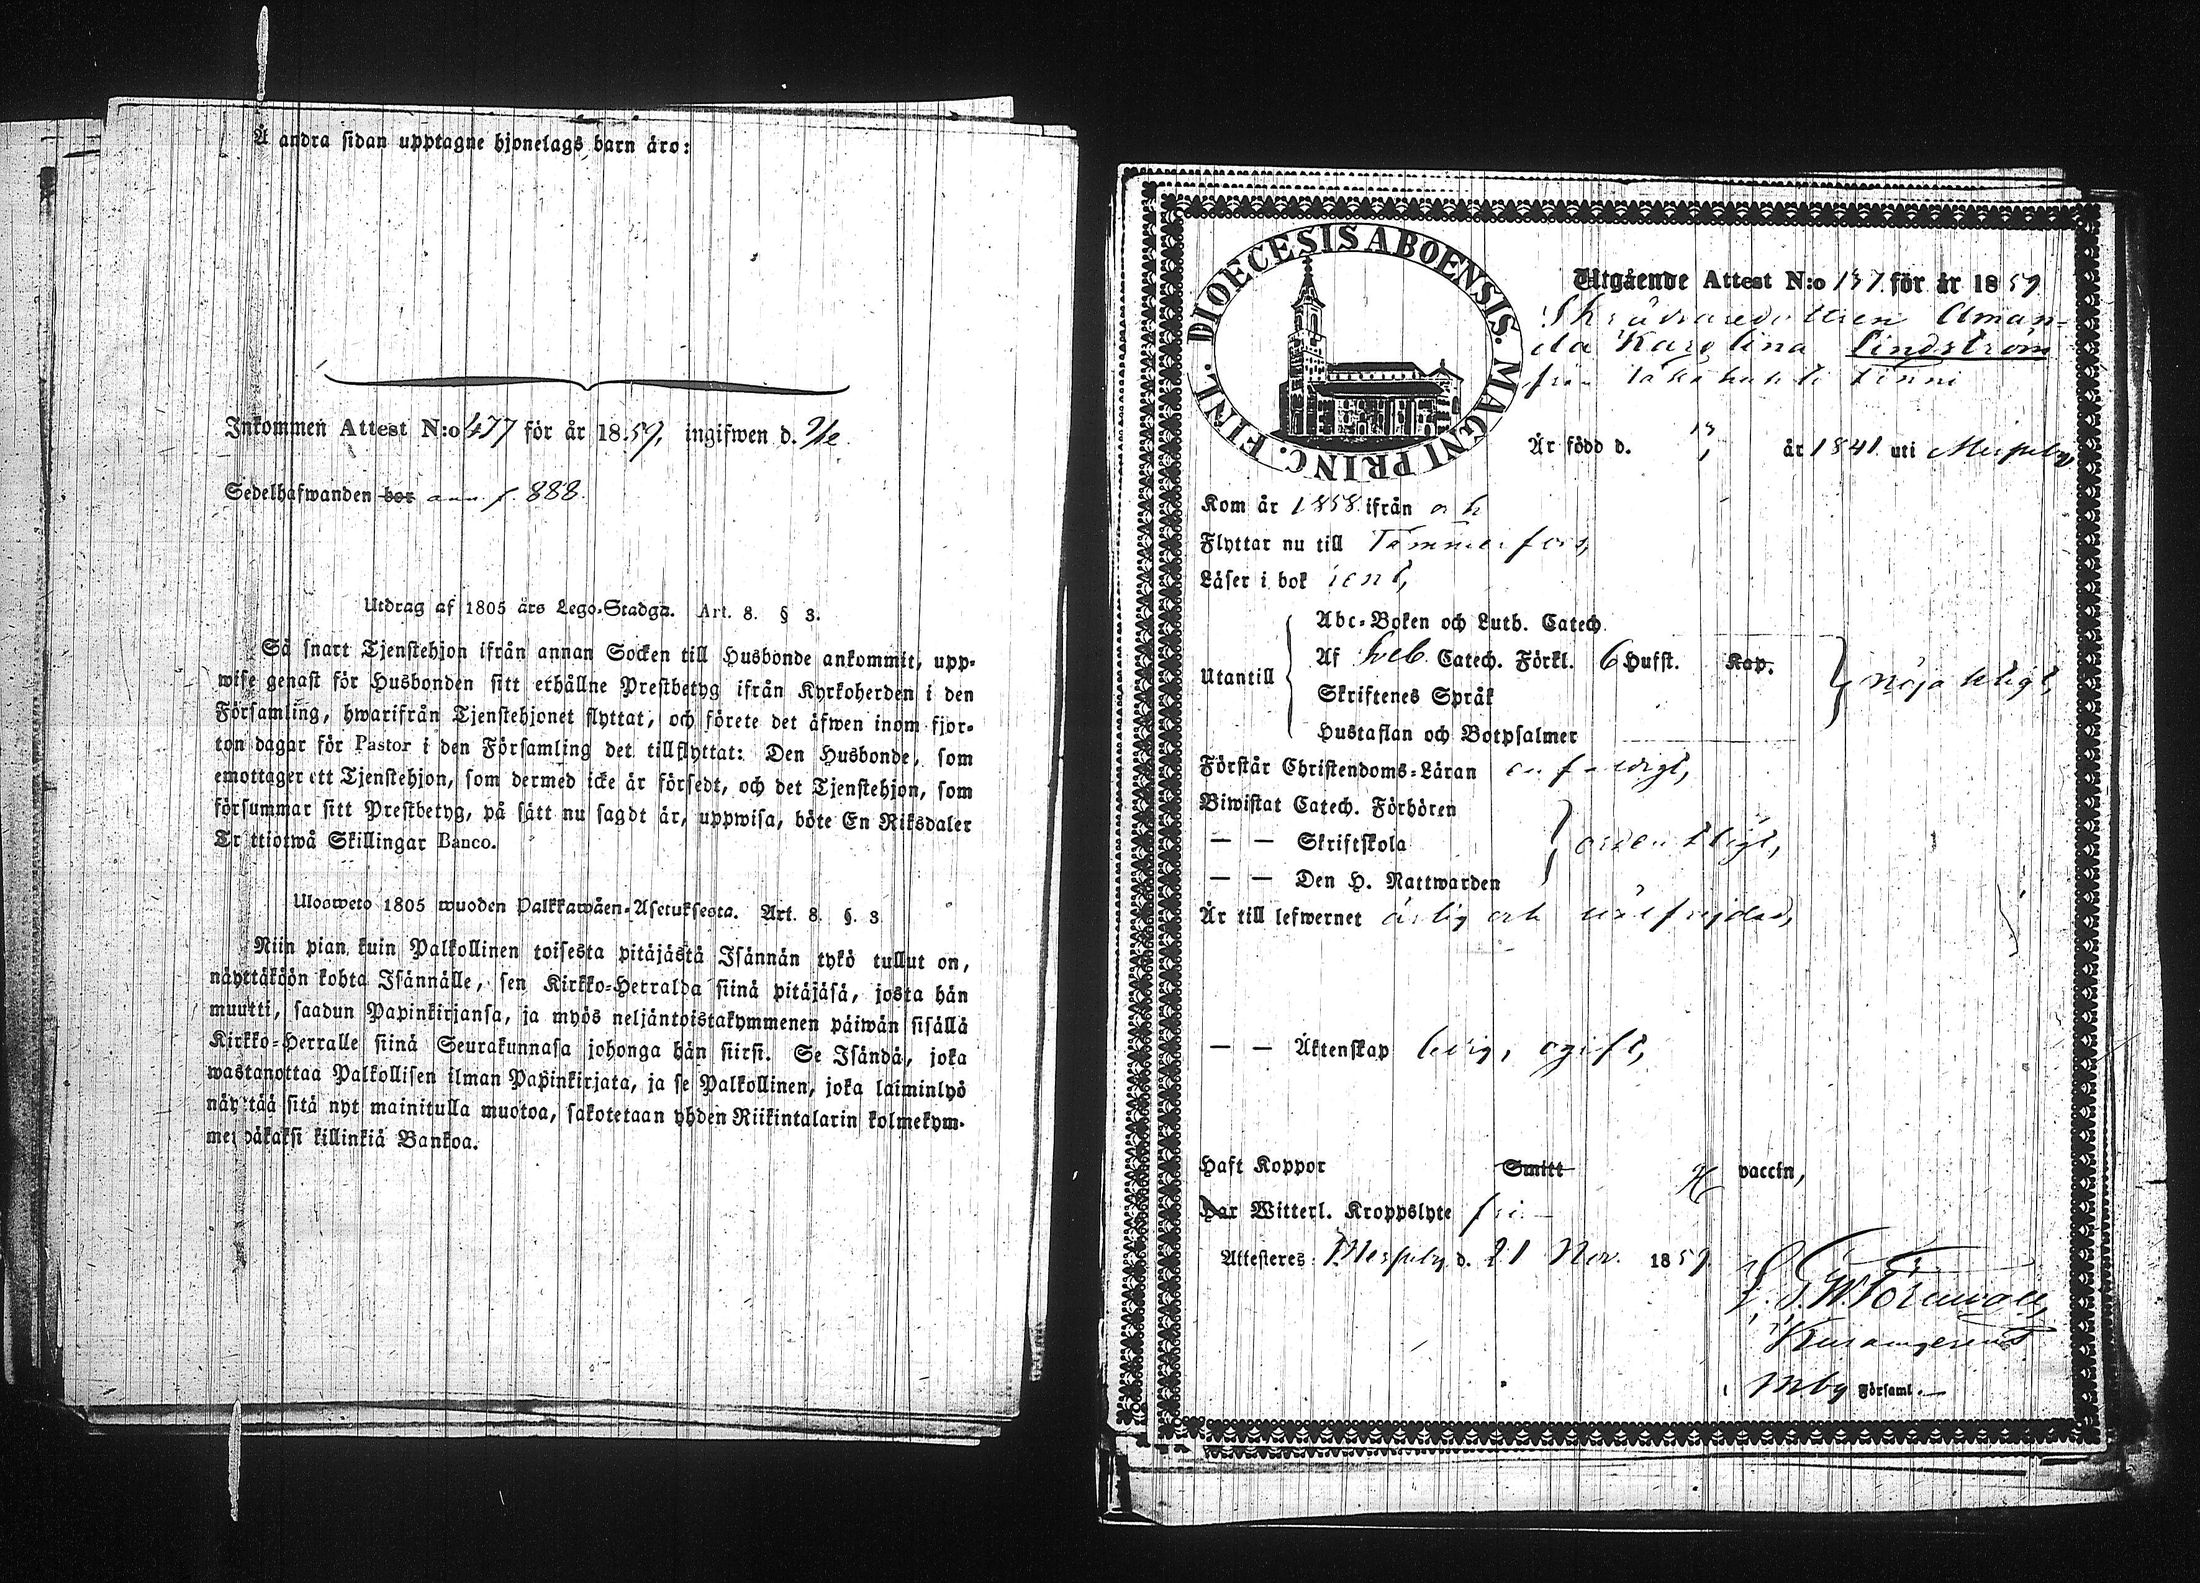 Å andra sidan upptagne hjonelags barn äro:
Inkommen Attest N:o 477 för år 1859, ingifwen d.
Sedelhafwanden bor ann f. 888.
Utdrag af 1805 års Lego-Stadga. Art. 8. § 3.
Så snart Tjenstehjon ifrån annan Socken till Husbonde ankommit, upp-
wise genast för Husbonden sitt erhållne Prestbetyg ifrån Kyrkoherden i den
Församling, hwarifrån Tjenstehjonet flyttat, och förete det äfwen inom fjor-
ton dagar för Pastor i den Församling det tillflyttat: Den Husbonde, som
emottager ett Tjenstehjon, som dermed icke är försedt, och det Tjenstehjon, som
försummar sitt Prestbetyg, på sätt nu sagdt är, uppwisa, böte En Riksdaler
Trettiotwå Skillingar Banco.
Ulosweto 1805 wuoden Palkkawäen-Asetuksesta. Art. 8. §. 3
Niin pian kuin Palkollinen toisesta pitäjästä Isännän tykö tullut on,
näyttäköön kohta Isännälle, sen Kirkko-Herralda siinä pitäjäsä, josta hän
muutti, saadun Papinkirjansa, ja myös neljäntoistakymmenen päiwän sisällä
Kirkko-Herralle siinä Seurakunnasa johonga hän siirsi. Se Isändä, joka
wastanottaa Palkollisen ilman Papinkirjata, ja se Palkollinen, joka laiminlyö
näyttää sitä nyt mainitulla muotoa, sakotetaan yhden Riikintalarin kolmekym-
mendäkaksi killinkiä Bankoa.
DIOECESIS ABOENSIS. MAGNI PRINC. FINL.
Utgående Attest N:o 137 för år 1859
Skräddaredottren Aman-
da Karolina Lindström
från
Är född d. år 1841 uti Messuby
Kom år 1858 ifrån
Flyttar nu till Tammerfors,
Läser i bok rent,
Abc-Boken och Luth. Catech.
Utantill Af Sveb. Catech. Förkl. 6 Hufst. Kap. nöjaktligt,
Skriftenes Språk
Hustaflan och Botpsalmer
Förstår Christendoms-Läran enfaldigt,
Biwistat Catech. Förhören
— — Skriftskola ordentligt,
— — Den H. Nattwarden
Är till lefwernet ärlig och wälfrejdad,
— — Äktenskap ledig, ogift,
Haft Koppor Smitt vaccin,
Har Witterl. Kroppslyte fri.
Attesteres Messuby d. 21 Nov. 1859.
i Mby Församl.